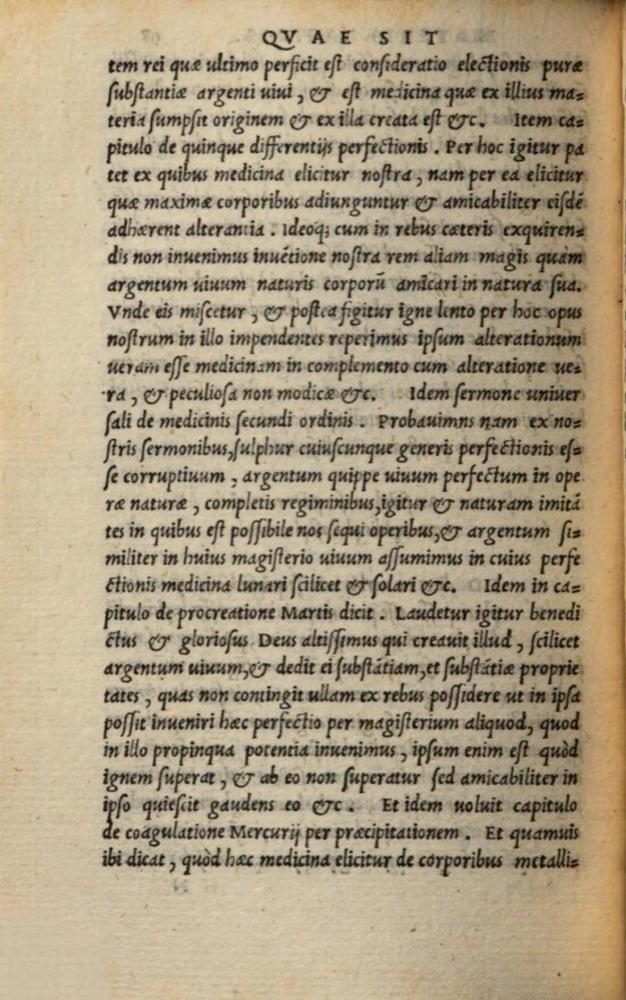 QVAE SIT
tem rei quæ ultimo perficit est consideratio electionis puræ
substantiæ argenti uiui, & est medicina quæ ex illius ma=
teria sumpsit originem & ex illa creata est &c. Item ca=
pitulo de quinque differentijs perfectionis. Per hoc igitur pa
tet ex quibus medicina elicitur nostra, nam per ea elicitur
quæ maximæ corporibus adiunguntur & amicabiliter eisdē
adhærent alterantia. Ideoq; cum in rebus cæteris exquiren=
dis non inuenimus inuētione nostra rem aliam magis quàm
argentum uiuum naturis corporū amicari in natura sua.
Vnde eis miscetur, & postea figitur igne lento per hoc opus
nostrum in illo impendentes reperimus ipsum alterationum
ueram esse medicinam in complemento cum alteratione ue=
ra, & peculiosa non modicæ &c. Idem sermone uniuer
sali de medicinis secundi ordinis. Probauimns nam ex no=
stris sermonibus, sulphur cuiuscunque generis perfectionis es=
se corruptiuum, argentum quippe uiuum perfectum in ope
ræ naturæ, completis regiminibus, igitur & naturam imitā
tes in quibus est possibile nos sequi operibus, & argentum si=
militer in huius magisterio uiuum assumimus in cuius perfe
ctionis medicina lunari scilicet & solari &c. Idem in ca=
pitulo de procreatione Martis dicit. Laudetur igitur benedi
ctus & gloriosus Deus altissimus qui creauit illud, scilicet
argentum uiuum, & dedit ei substātiam, et substātiæ proprie
tates, quas non contingit ullam ex rebus possidere ut in ipsa
possit inueniri hæc perfectio per magisterium aliquod, quod
in illo propinqua potentia inuenimus, ipsum enim est quòd
ignem superat, & ab eo non superatur sed amicabiliter in
ipso quiescit gaudens eo &c. Et idem uoluit capitulo
de coagulatione Mercurij per præcipitationem. Et quamuis
ibi dicat, quòd hæc medicina elicitur de corporibus metalli=